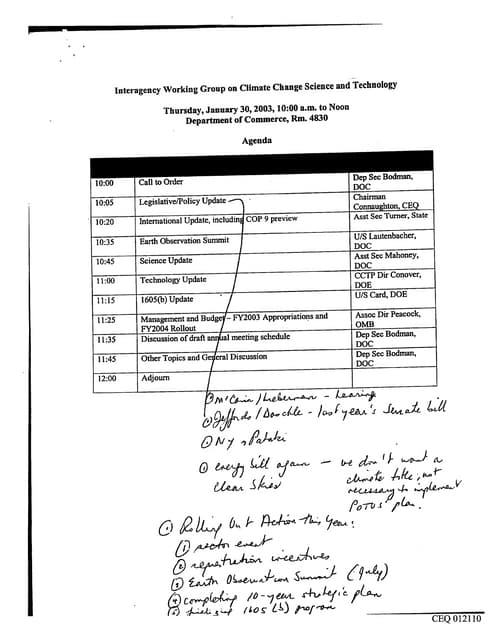 Interagency Working Group on Climate Change Science and Technology
Thursday, January 30, 2003, 10:00 a.m. to Noon
Department of Commerce, Rm. 4830
Agenda
10:00 Call to Order Dep Sec Bodman, DOC
10:05 Legislative/Policy Update Chairman Connaughton, CEQ
10:20 International Update, including COP 9 preview Asst Sec Turner, State
10:35 Earth Observation Summit U/S Lautenbacher, DOC
10:45 Science Update Asst Sec Mahoney, DOC
11:00 Technology Update CCTP Dir Conover, DOE
11:15 1605(b) Update U/S Card, DOE
11:25 Management and Budget – FY2003 Appropriations and FY2004 Rollout Assoc Dir Peacock, OMB
11:35 Discussion of draft annual meeting schedule Dep Sec Bodman, DOC
11:45 Other Topics and General Discussion Dep Sec Bodman, DOC
12:00 Adjourn
McCain/Lieberman - hearing
Jeffords/Daschle - last year's Senate bill
NY Pataki
energy bill again — we don't want a
clear skies climate title, not
necessary to implement
POTUS' plan.
Rolling Out Action This Year:
① sector event
② incentives
③ Earth Observation Summit (July)
④ completing 10-year strategic plan
⑤ 1605(b) program
CEQ 012110